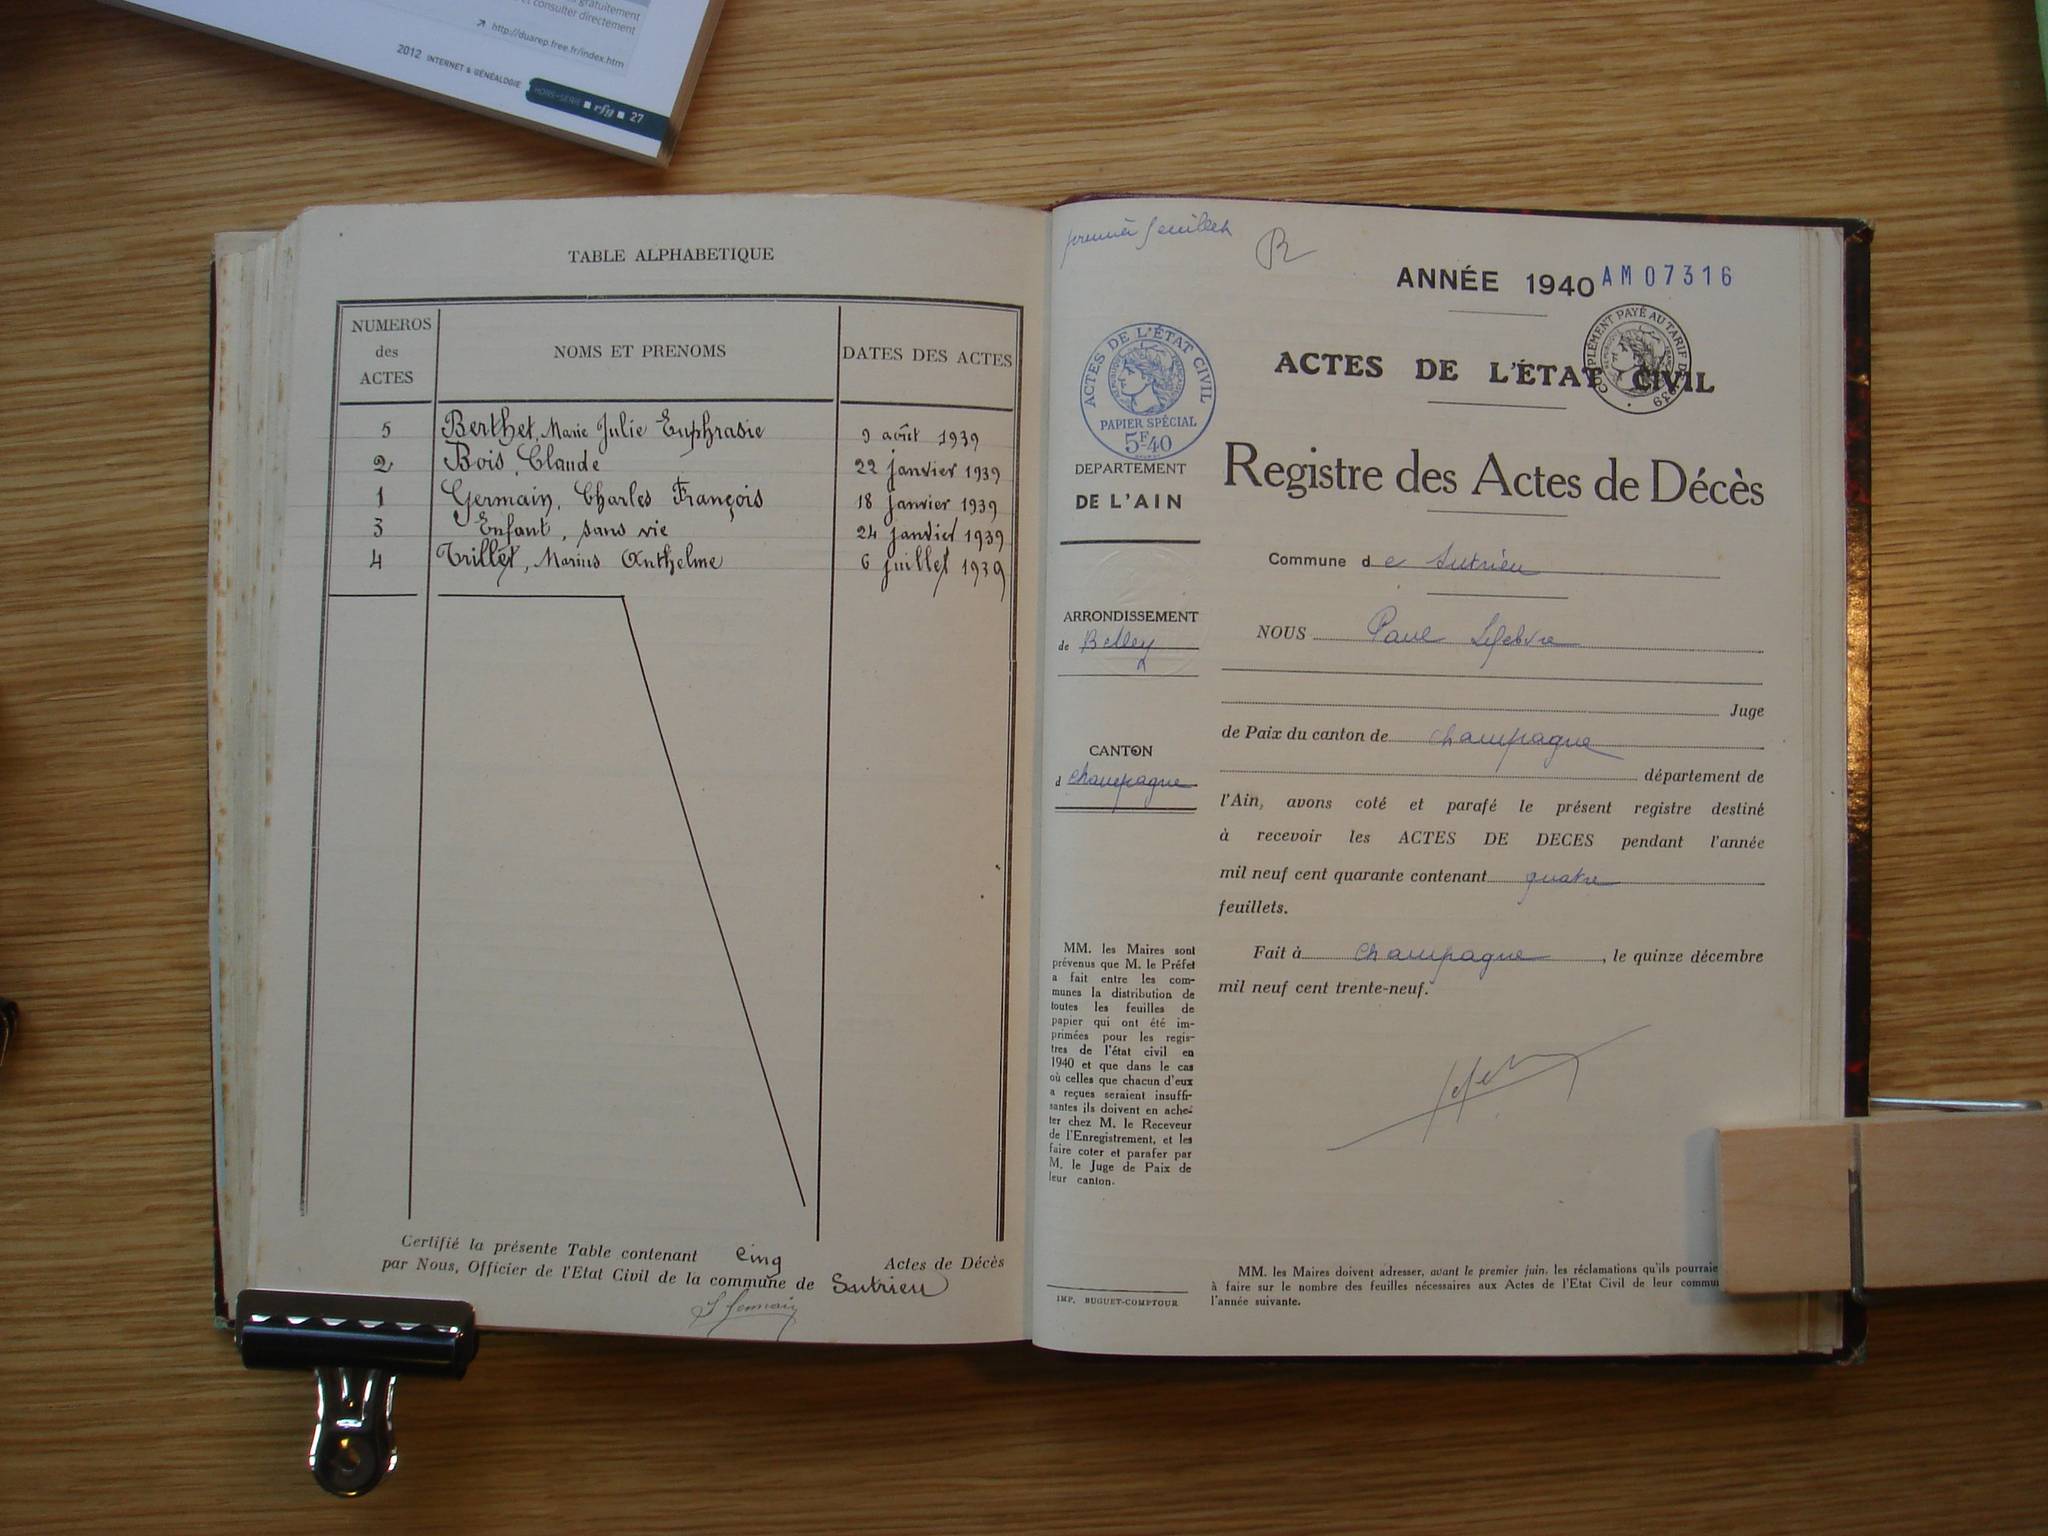 gratuitement
et consulter directement
http://duarep.free.fr/index.htm
2012 INTERNET & GÉNÉALOGIE HORS-SÉRIE rfg 27
TABLE ALPHABETIQUE
NUMEROS des ACTES NOMS ET PRENOMS DATES DES ACTES
5 Berthet, Marie Julie Euphrasie 9 août 1939
2 Bois, Claude 22 janvier 1939
1 Germain, Charles François 18 janvier 1939
3 Enfant, sans vie 24 janvier 1939
4 Trillet, Marius Anthelme 6 juillet 1939
Certifié la présente Table contenant cinq Actes de Décès
par Nous, Officier de l'Etat Civil de la commune de Sutrieu
Germain
premier feuillet
ANNÉE 1940 AM07316
ACTES DE L'ÉTAT CIVIL
PAPIER SPÉCIAL
5F40
COMPLÉMENT PAYÉ AU TARIF DE 1939
ACTES DE L'ÉTAT CIVIL
Registre des Actes de Décès
DEPARTEMENT
DE L'AIN
ARRONDISSEMENT
de Belley
CANTON
d Champagne
Commune de Sutrieu
NOUS Paul Lefebvre
Juge
de Paix du canton de Champagne
département de
l'Ain, avons coté et parafé le présent registre destiné
à recevoir les ACTES DE DECES pendant l'année
mil neuf cent quarante contenant quatre
feuillets.
Fait à Champagne, le quinze décembre
mil neuf cent trente-neuf.
MM. les Maires sont
prévenus que M. le Préfet
a fait entre les com-
munes la distribution de
toutes les feuilles de
papier qui ont été im-
primées pour les regis-
tres de l'état civil en
1940 et que dans le cas
où celles que chacun d'eux
a reçues seraient insuffi-
santes ils doivent en ache-
ter chez M. le Receveur
de l'Enregistrement, et les
faire coter et parafer par
M. le Juge de Paix de
leur canton.
IMP. BUGUET-COMPTOUR
MM. les Maires doivent adresser, avant le premier juin, les réclamations qu'ils pourraie
à faire sur le nombre des feuilles nécessaires aux Actes de l'Etat Civil de leur commu
l'année suivante.